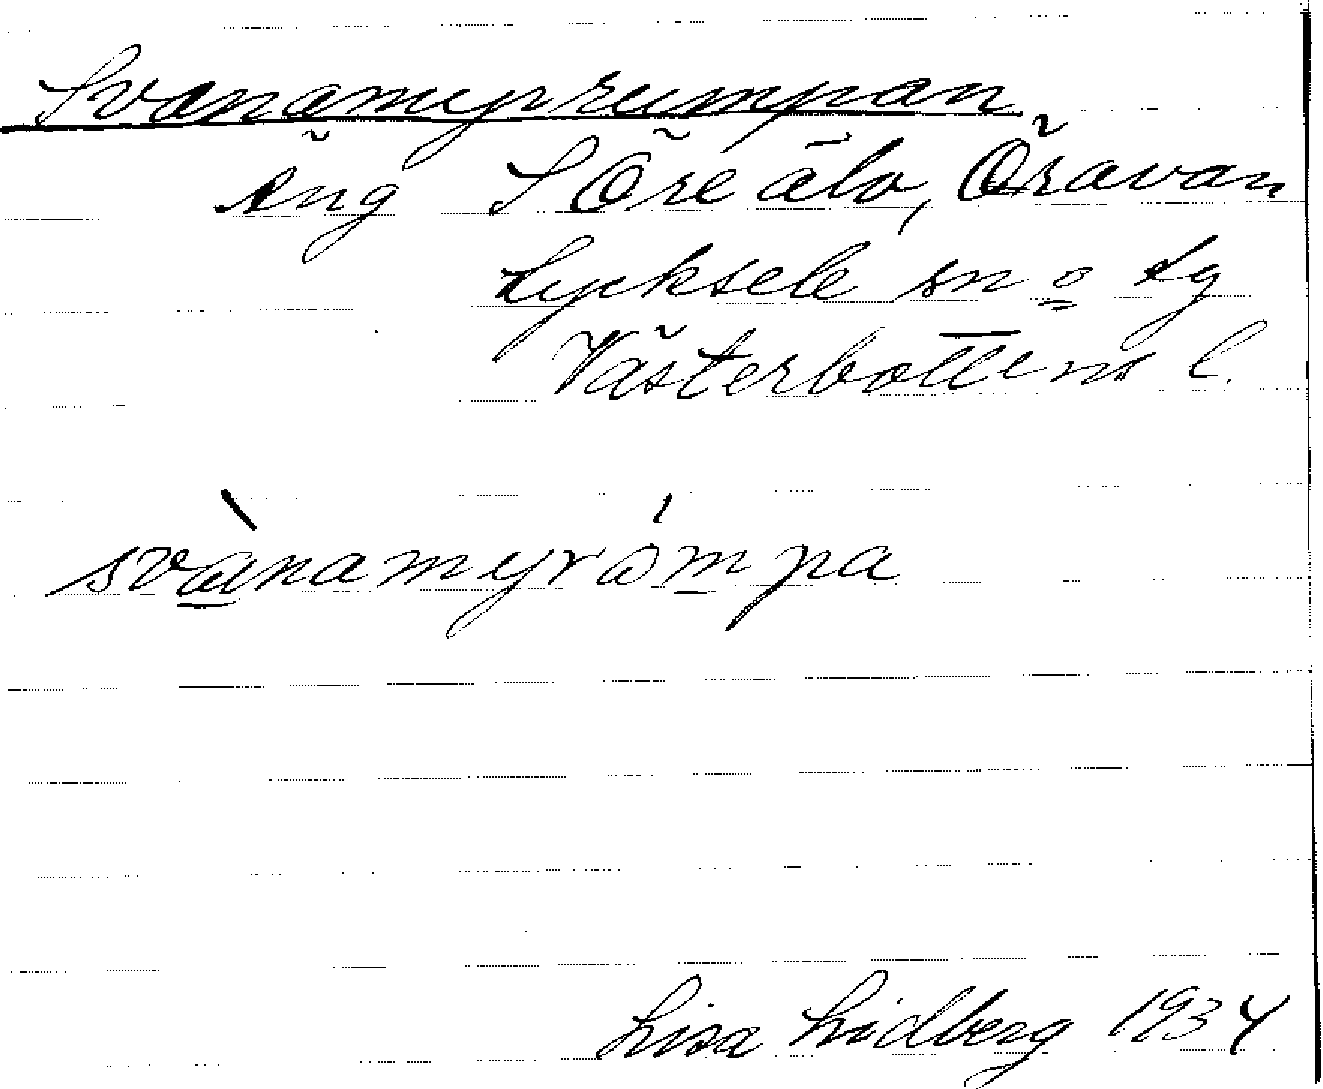 Svanamyrrumpan
äng S Öre älv, Öravan
Lycksele sn o lg
Västerbottens l.
svànamyrómpa
Lisa Lidberg 1934